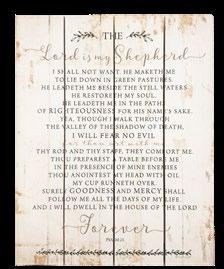 THE
Lord is my Shepherd
I SHALL NOT WANT. HE MAKETH ME
TO LIE DOWN IN GREEN PASTURES.
HE LEADETH ME BESIDE THE STILL WATERS
HE RESTORETH MY SOUL.
HE LEADETH ME IN THE PATHS
OF RIGHTEOUSNESS FOR HIS NAME'S SAKE.
YEA, THOUGH I WALK THROUGH
THE VALLEY OF THE SHADOW OF DEATH,
I WILL FEAR NO EVIL
for thou art with me
THY ROD AND THY STAFF, THEY COMFORT ME.
THOU PREPAREST A TABLE BEFORE ME
IN THE PRESENCE OF MINE ENEMIES
THOU ANOINTEST MY HEAD WITH OIL
MY CUP RUNNETH OVER.
SURELY GOODNESS AND MERCY SHALL
FOLLOW ME ALL THE DAYS OF MY LIFE.
AND I WILL DWELL IN THE HOUSE OF THE LORD
Forever
PSALM 23